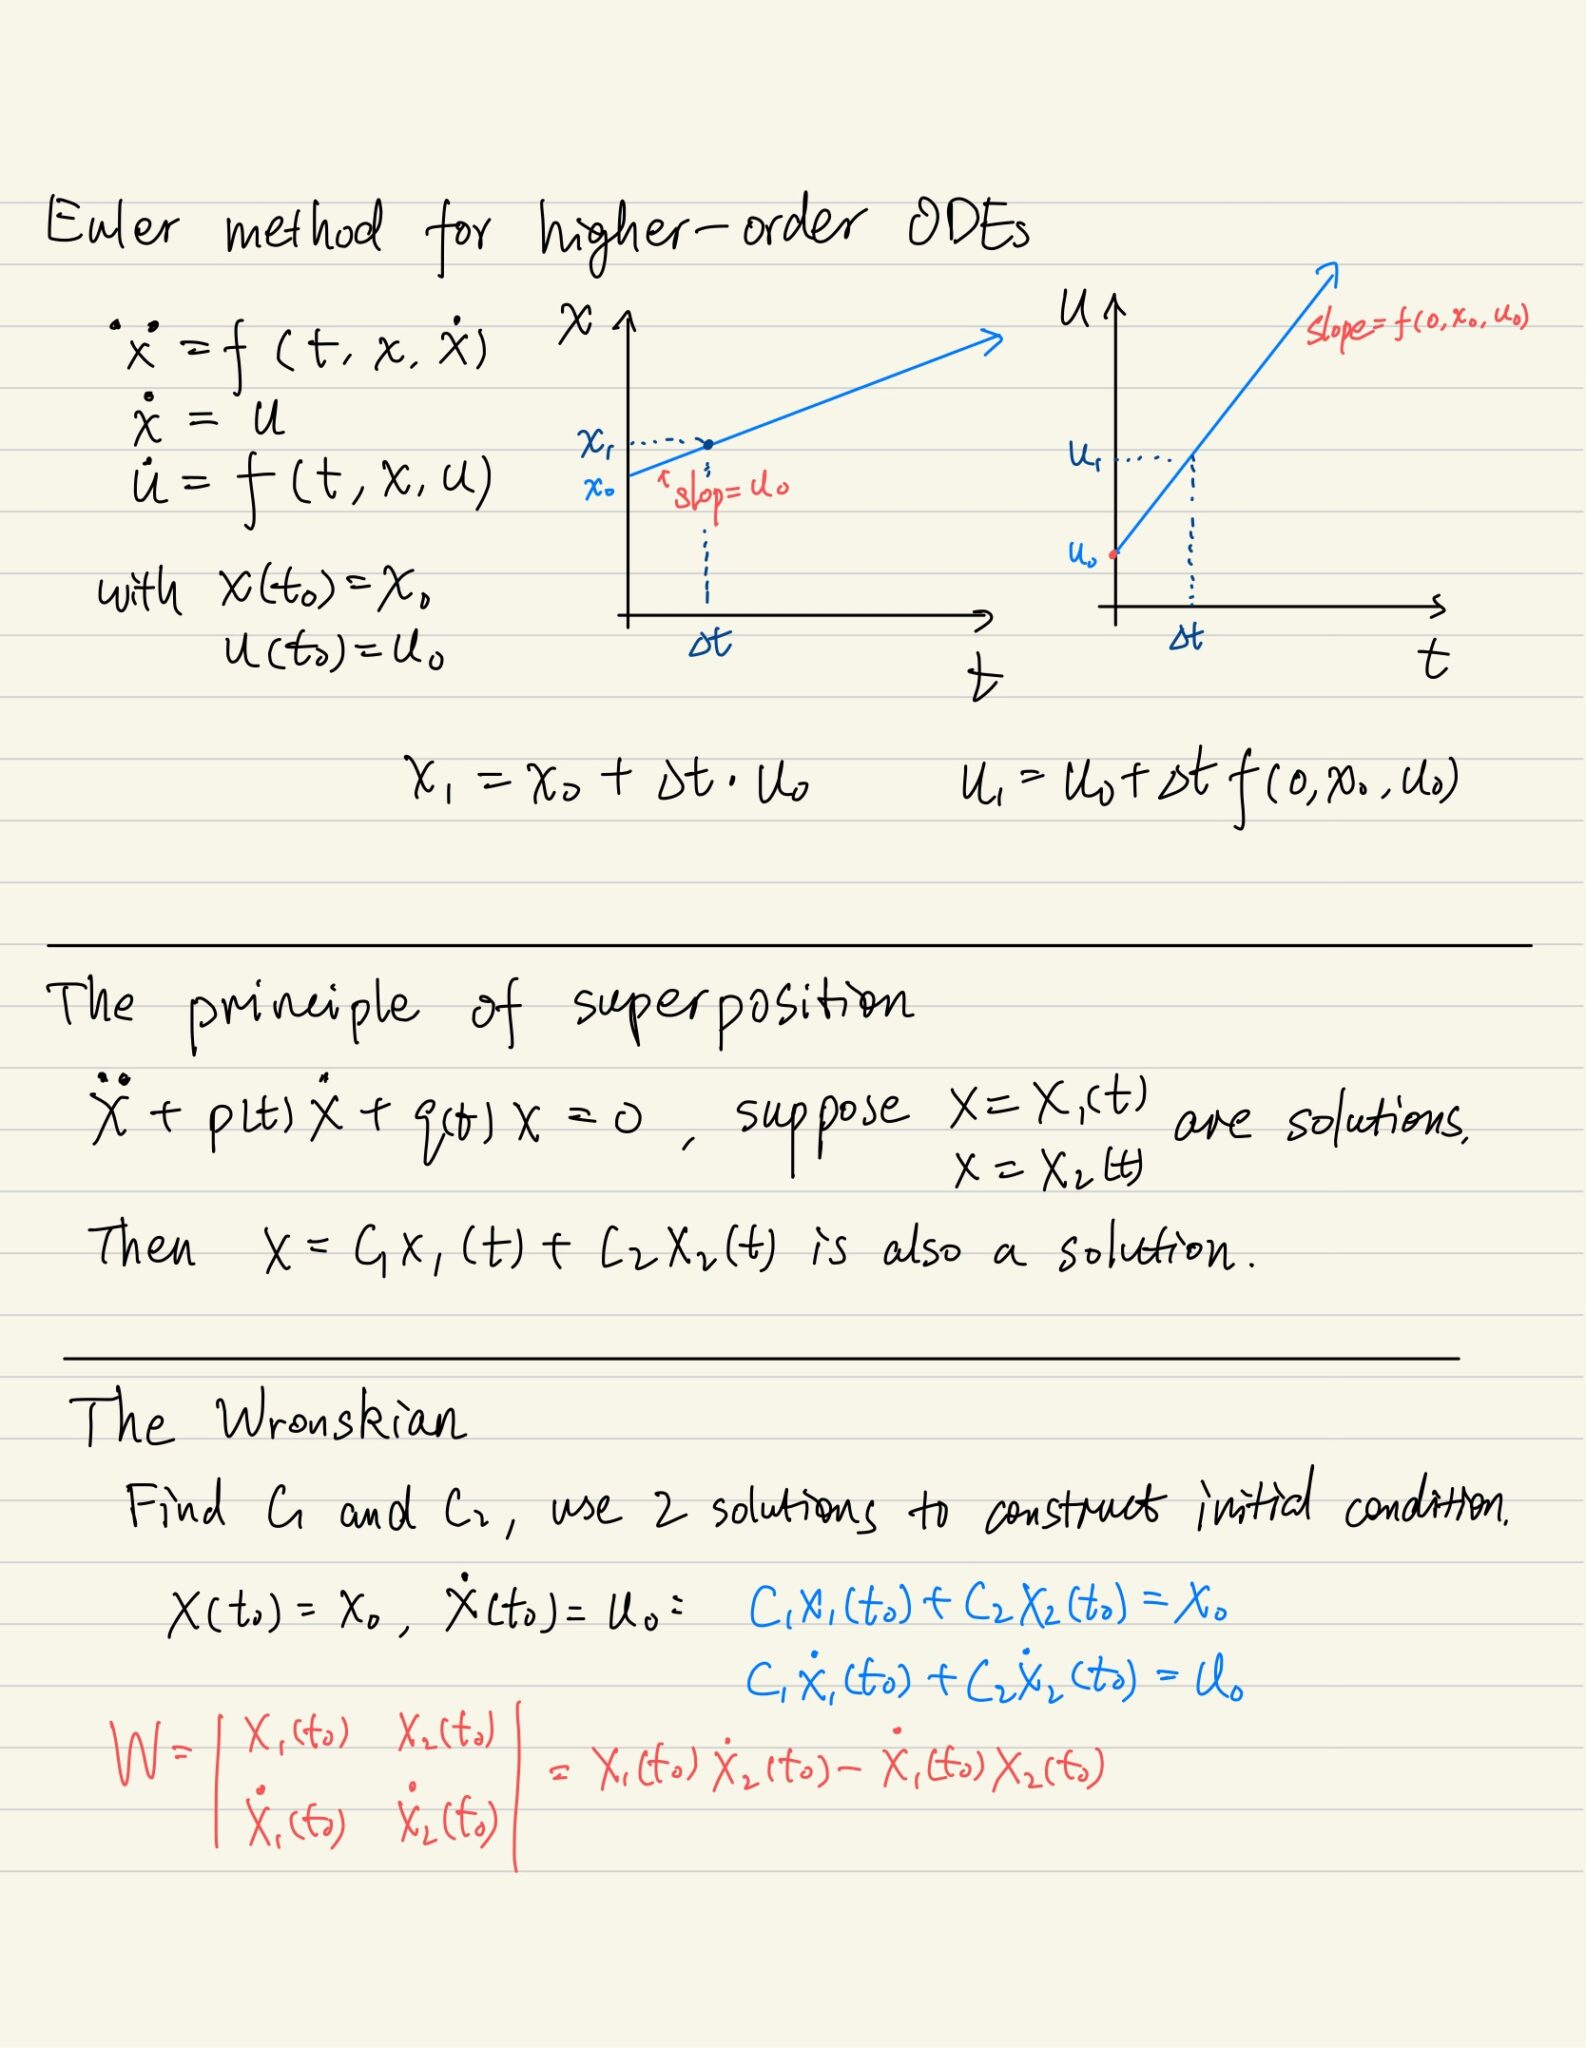 Euler method for higher-order ODEs
ẍ = f (t, x, ẋ)
ẋ = u
u̇ = f (t, x, u)
with x(t₀) = x₀
u(t₀) = u₀
x
x₁
x₀
slop = u₀
Δt
t
u
slope = f(0, x₀, u₀)
u₁
u₀
Δt
t
x₁ = x₀ + Δt · u₀
u₁ = u₀ + Δt f(0, x₀, u₀)
The principle of superposition
ẍ + p(t) ẋ + q(t) x = 0, suppose x = x₁(t) are solutions.
x = x₂(t)
Then x = C₁x₁(t) + C₂x₂(t) is also a solution.
The Wronskian
Find C₁ and C₂, use 2 solutions to construct initial condition.
x(t₀) = x₀, ẋ(t₀) = u₀ : C₁x₁(t₀) + C₂x₂(t₀) = x₀
C₁ẋ₁(t₀) + C₂ẋ₂(t₀) = u₀
W = | x₁(t₀) x₂(t₀) | = x₁(t₀) ẋ₂(t₀) − ẋ₁(t₀) x₂(t₀)
ẋ₁(t₀) ẋ₂(t₀)